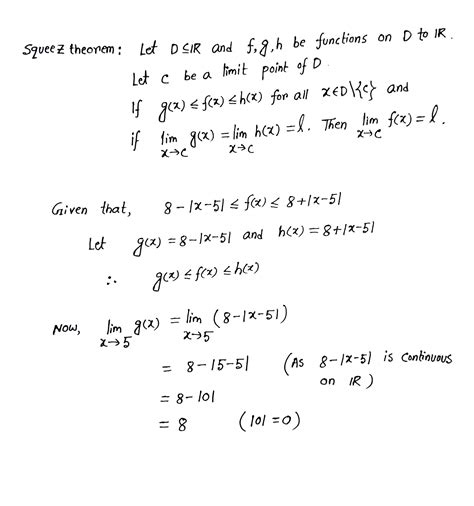 Squeez theorem : Let D ⊆ IR and f, g, h be functions on D to IR.
Let c be a limit point of D.
If g(x) ≤ f(x) ≤ h(x) for all x ∈ D\{c} and
if lim_{x→c} g(x) = lim_{x→c} h(x) = l. Then lim_{x→c} f(x) = l.
Given that, 8 - |x-5| ≤ f(x) ≤ 8 + |x-5|
Let g(x) = 8 - |x-5| and h(x) = 8 + |x-5|
∴ g(x) ≤ f(x) ≤ h(x)
Now, lim_{x→5} g(x) = lim_{x→5} (8 - |x-5|)
= 8 - |5-5| (As 8 - |x-5| is continuous
on IR)
= 8 - |0|
= 8 (|0| = 0)